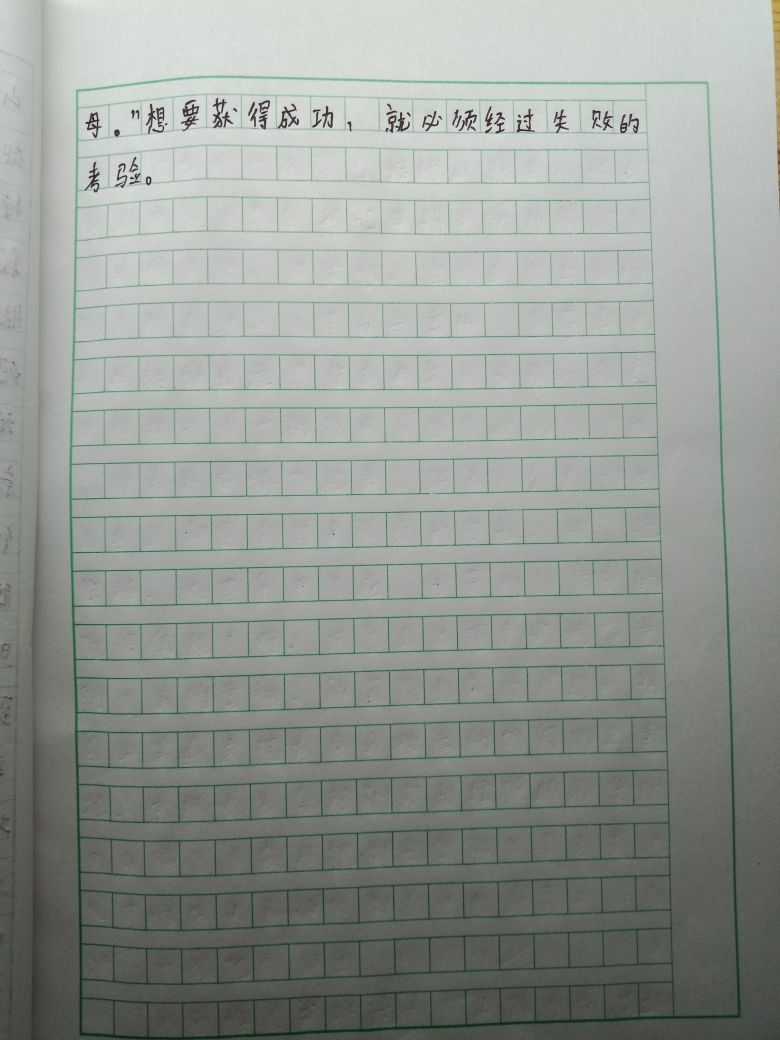 母。”想要获得成功，就必须经过失败的
考验。